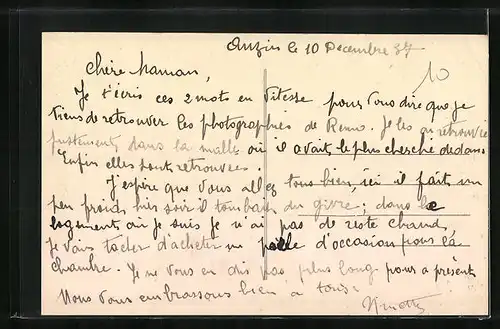 Anzin le 10 Décembre 37
10
Chère Maman,
Je t'écris ces 2 mots en vitesse pour vous dire que je
viens de retrouver les photographies de Remo. Je les ai retrouvées
justement dans la malle où il avait le plus cherché dedans
Enfin elles sont retrouvées.
J'espère que vous allez tous bien, ici il fait un
peu froid, hier soir il tombait du givre; dans le
logement où je suis je n'ai pas de reste chaud,
je vais tacher d'acheter un poêle d'occasion pour la
chambre. Je ne vous en dis pas plus long pour à présent
Nous vous embrassons bien à tous.